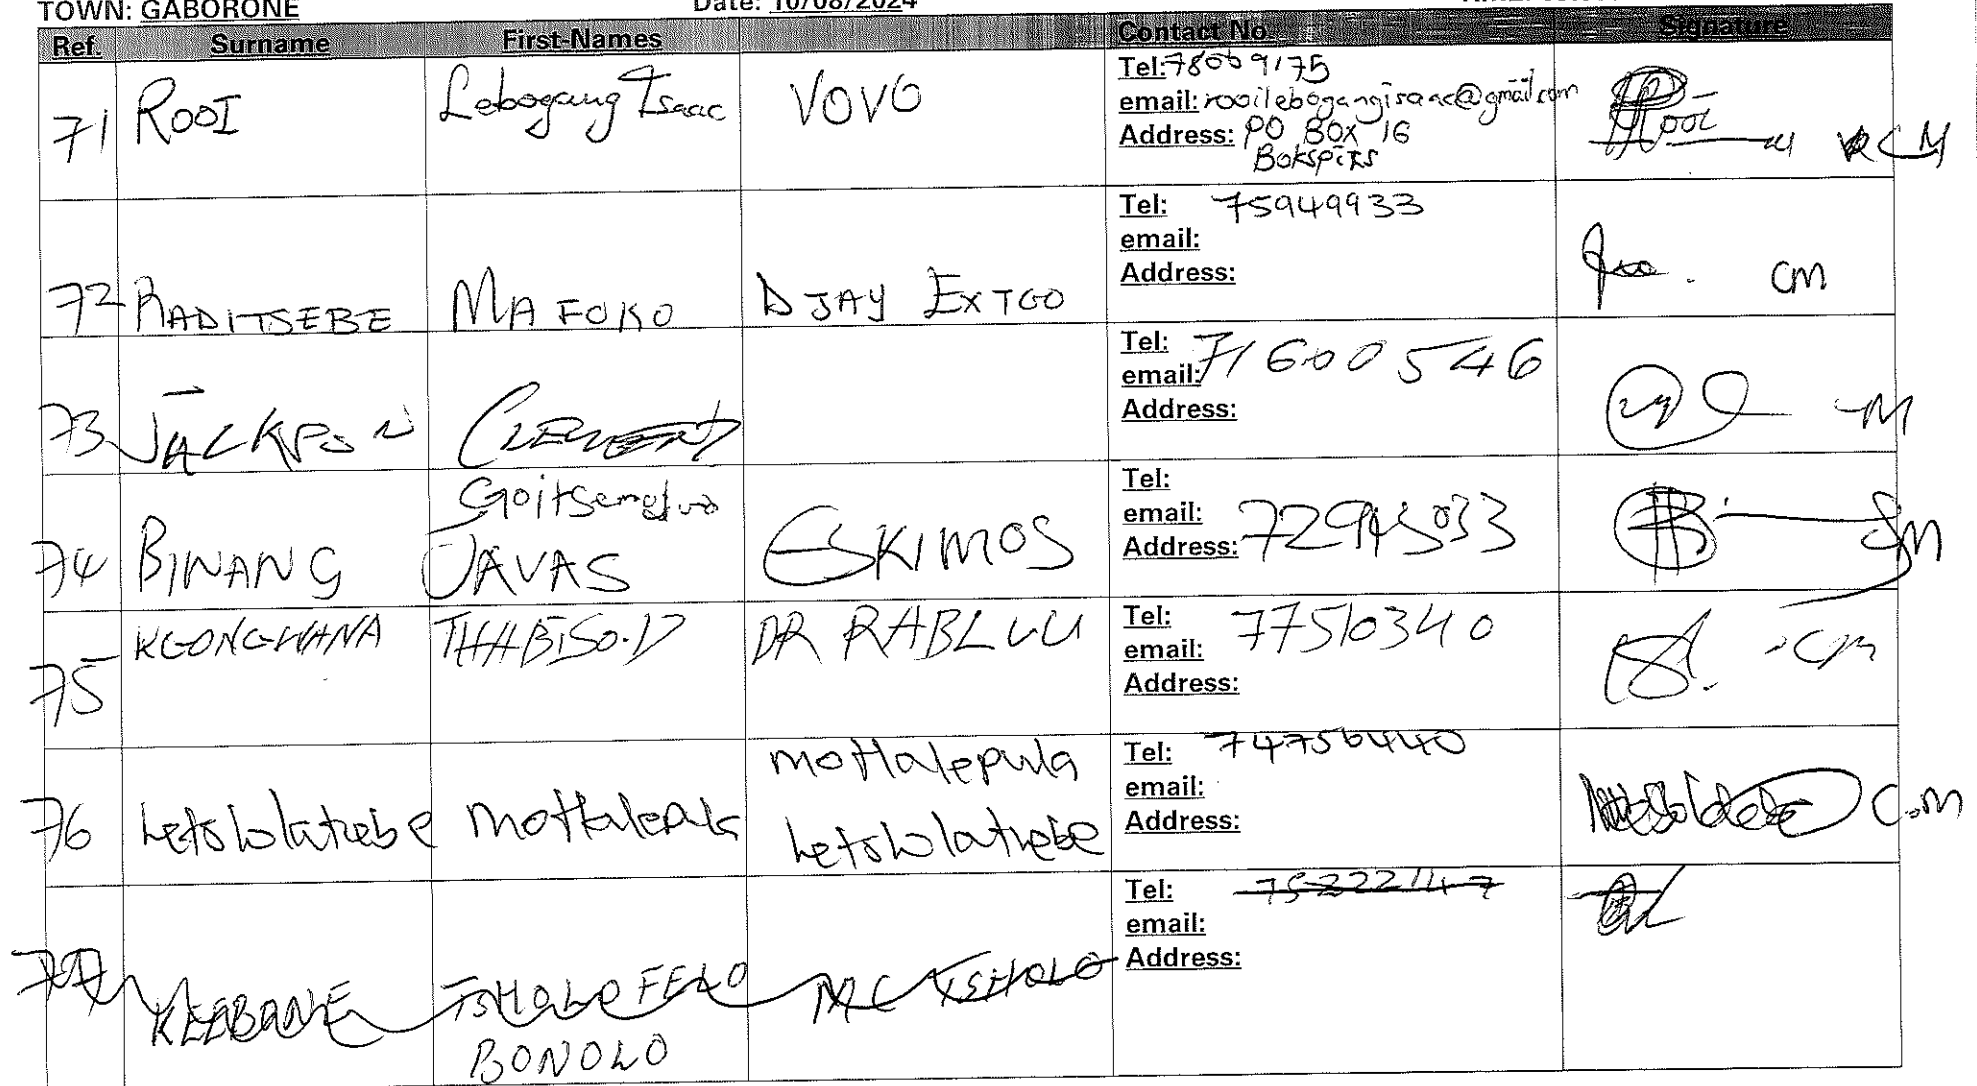 TOWN: GABORONE Date: 10/08/2024
Ref. Surname First-Names Contact No. Signature
71 ROOI Lebogang Isaac VOVO
Tel: 78069175
email: rooilebogangisaac@gmail.com
Address: PO BOX 16
BOKSPITS
CM
72 RADITSEBE MAFOKO DJAY EXTGO
Tel: 75949933
email:
Address:
CM
73 JACKSON CLEMENT
Tel: 71600546
email:
Address:
74 BINANG Goitsemodimo
JAVAS ESKIMOS
Tel:
email:
Address: 72945033
75 KGONGWANA THABISO.D DR RABLUU
Tel: 77510340
email:
Address:
CM
76 Letsholathebe Motlalepula Motlalepula
Letsholathebe
Tel: 74756440
email:
Address:
C.M
77 KEABONE TSHOLOFELO MC TSHOLO
BONOLO
Tel: 75222147
email:
Address: